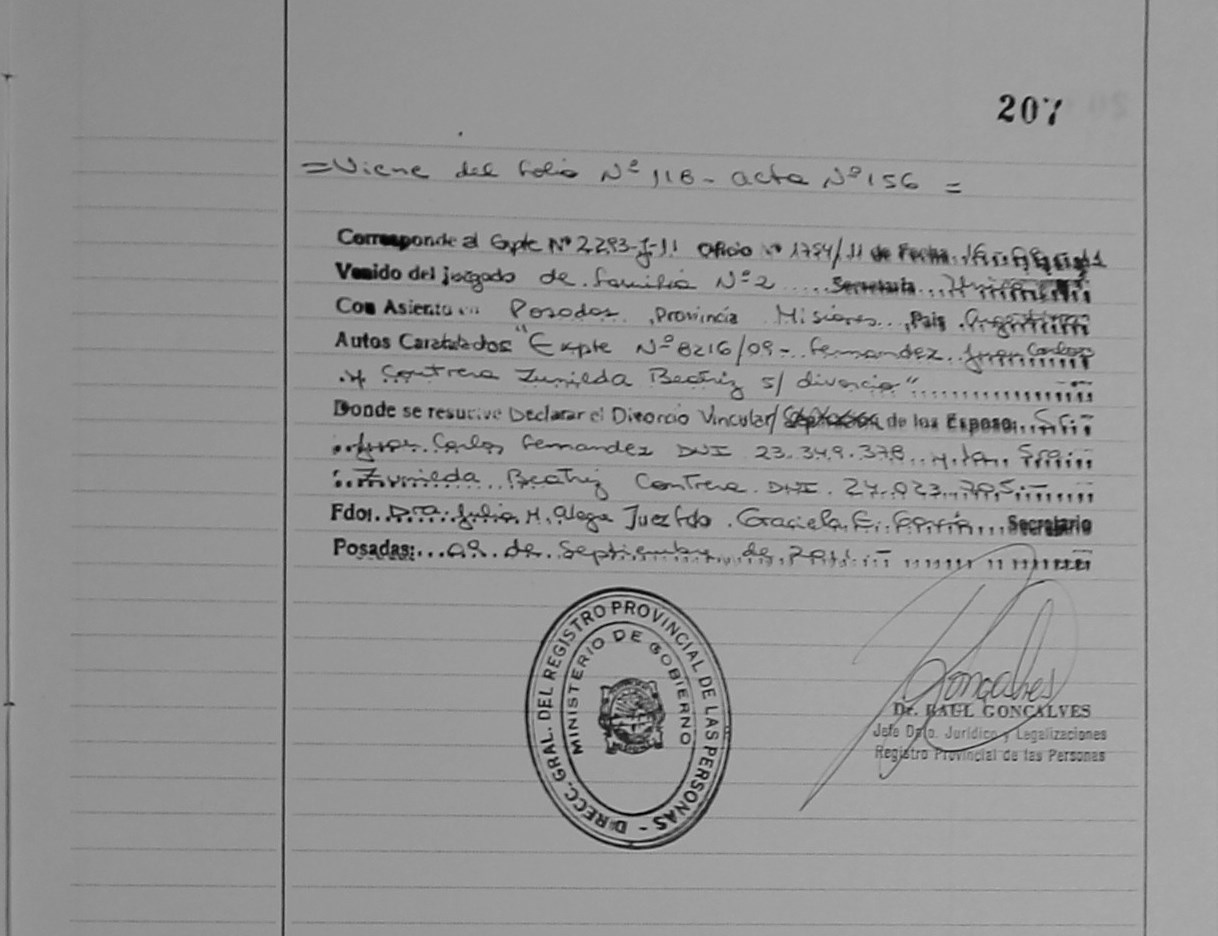 207
=Viene del folio Nº 118 - acta Nº 156 =
Corresponde al Expte Nº 2293-J-11 Oficio Nº 1754/11 de Fecha 16
Venido del juzgado de familia Nº 2 Secretaria
Con Asiento en Posadas Provincia Misiones País Argentina
Autos Caratulados "Expte Nº 8216/09 - Fernandez Juan Carlos
y Contrera Zunilda Beatriz s/ divorcio"
Donde se resuelve Declarar el Divorcio Vincular/ de los Esposo: Sr.
Juan Carlos Fernandez DNI 23.349.378 y la Sra.
Zunilda Beatriz Contrera DNI. 27.023.705.-
Fdo: Dra. Julia H. Juez fdo. Graciela E. Secretario
Posadas: 09 de Septiembre de 2011.-
DIRECC. GRAL. DEL REGISTRO PROVINCIAL DE LAS PERSONAS -
MINISTERIO DE GOBIERNO
Goncalves
Dr. RAUL GONCALVES
Jefe Dpto. Jurídico y Legalizaciones
Registro Provincial de las Personas